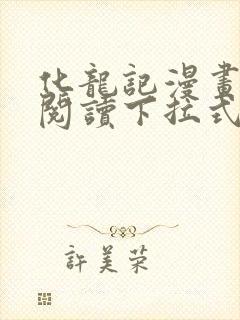 化龍記漫畫
閱讀下拉式
許美荣